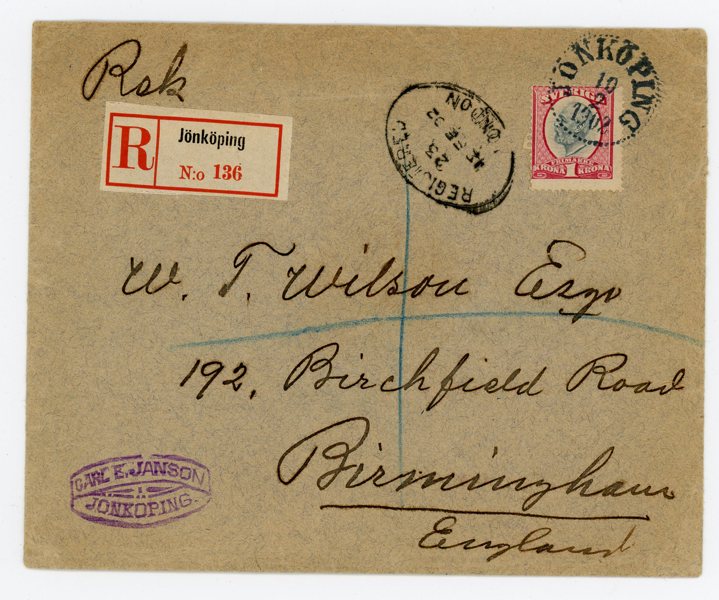 Rek
R
Jönköping
N:o 136
REGISTERED
23 FE 02
LONDON
JÖNKÖPING
10
2
1902
SVERIGE
FRIMÄRKE
KRONA 1 KRONA
W. T. Wilson Esqr
192, Birchfield Road
Birmingham
England
CARL E. JANSON
I
JÖNKÖPING.